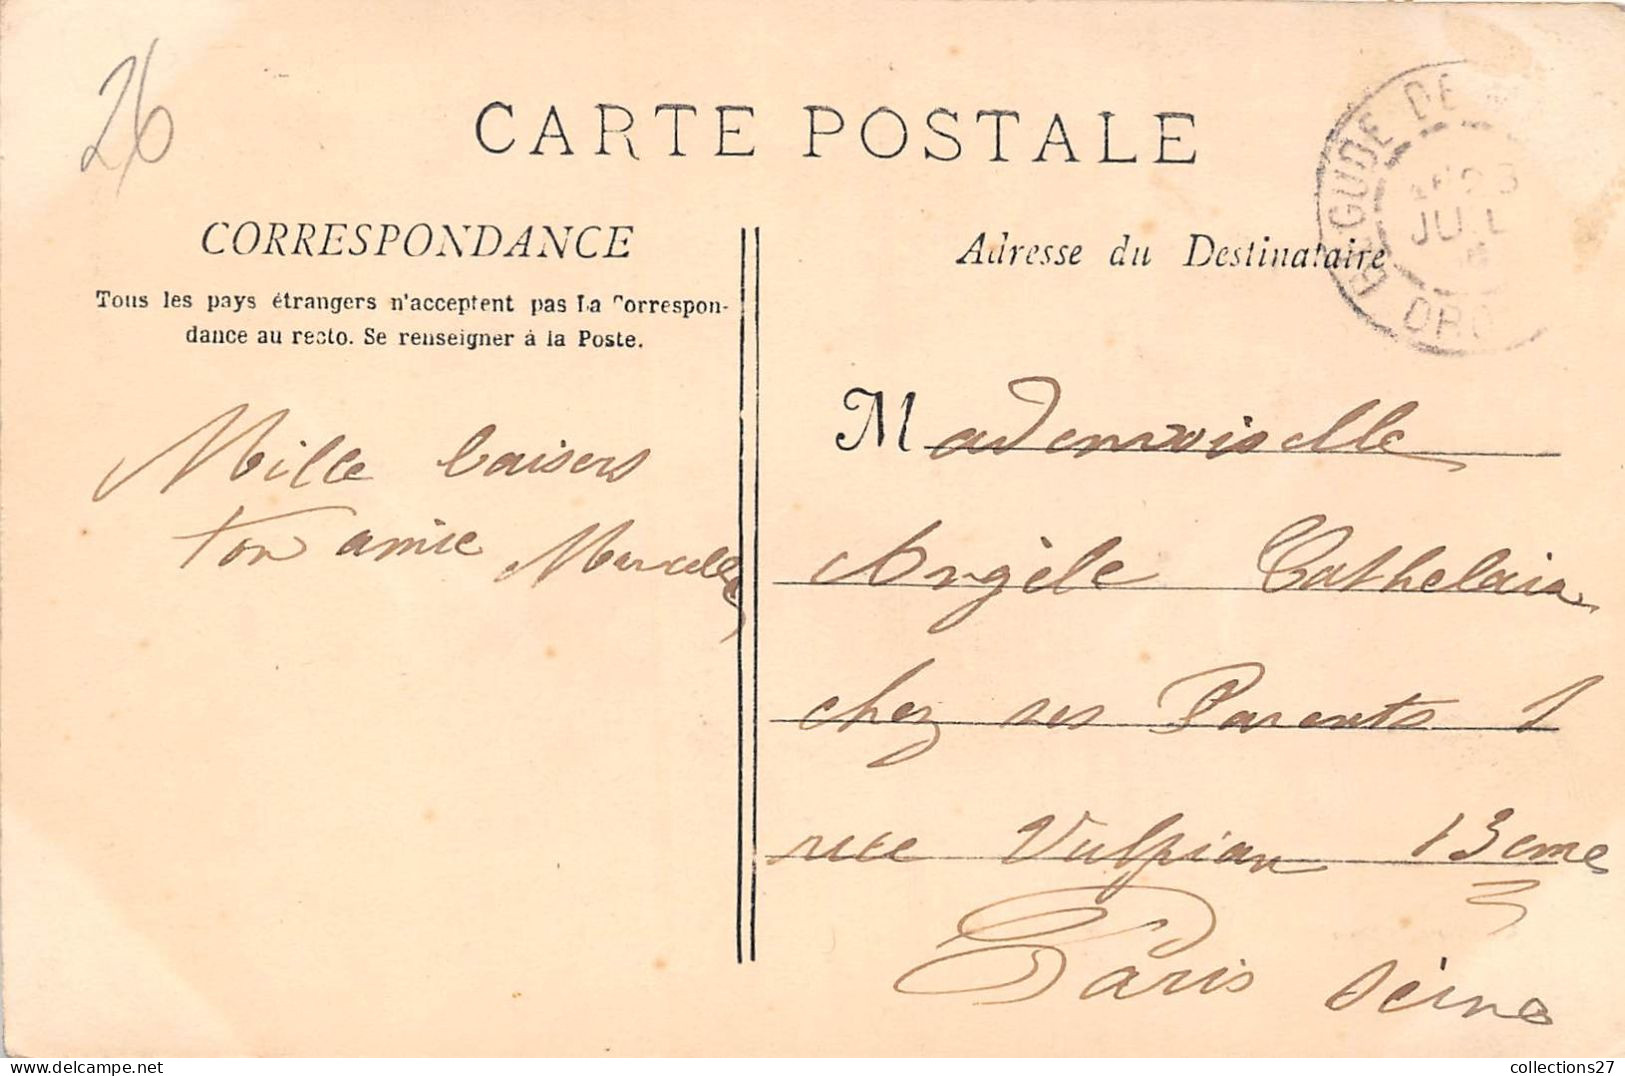 26
CARTE POSTALE
CORRESPONDANCE
Tous les pays étrangers n'acceptent pas La Correspon-
dance au recto. Se renseigner à la Poste.
Mille baisers
ton amie Marcelle
Adresse du Destinataire
BEGUDE DE
23
JUIL
DRO
Mademoiselle
Angèle Cathelain
chez ses Parents 1
rue Vulpian 13eme
Paris Seine
collections27